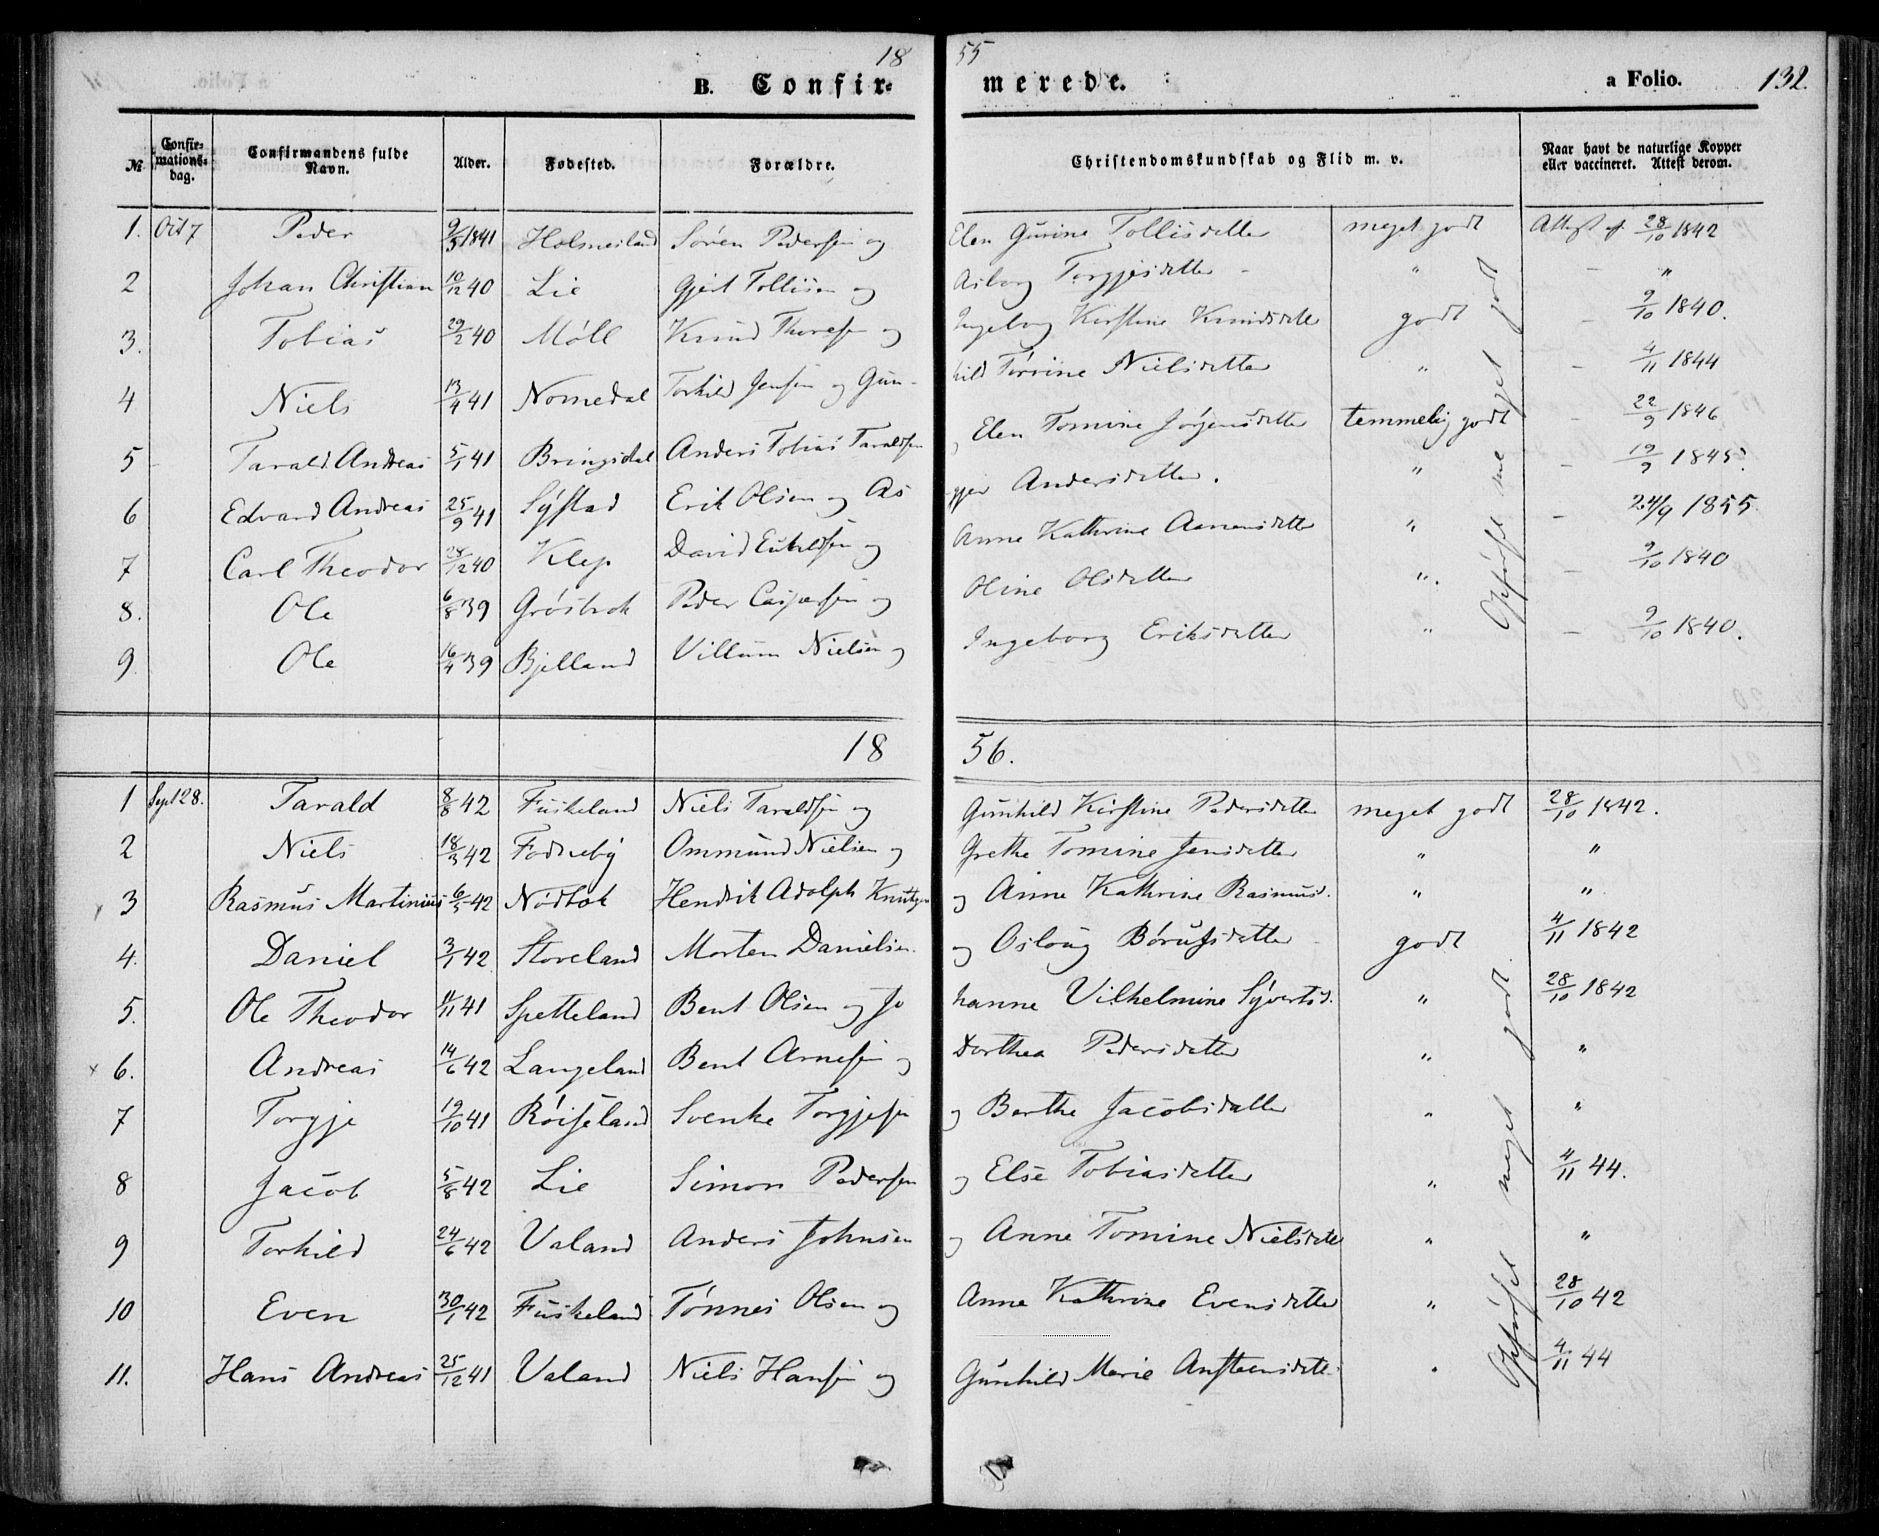 18 55
B. Confirmerede. a Folio. 132.
№ Confirmationsdag. Confirmandens fulde Navn. Alder. Fødested. Forældre. Christendomskundskab og Flid m. v. Naar havt de naturlige Kopper eller vaccineret. Attest derom.
1. Oct 7 Peder 9/5 1841 Holmesland Søren Pedersen og Elen Gurine Tollisdatter meget godt Attest af 28/10 1842
2 Johan Christian 10/12 40 Lie Gjert Tollisen og Asborg Torgjesdatter - " - "
3. Tobias 29/2 40 Møll Knud Thoresen og Ingeborg Kirstine Knudsdatter godt - 9/10 1840.
4 Niels 13/4 41 Nomedal Torkild Jensen og Gunhild Torine Nielsdatter " - 4/11 1844
5 Tarald Andreas 5/1 41 Bringsdal Anders Tobias Taraldsen og Elen Tomine Jørgensdatter temmelig godt - 22/9 1846
6 Edvard Andreas 25/9 41 Syftad Erik Olsen og Asgjer Andersdatter. " - 19/9 1845.
7 Carl Theodor 28/12 40 Klep David Eukildsen og Anne Kathrine Aanensdatter " - 24/9 1855.
8. Ole 6/8 39 Grøsbrok Peder Caspersen og Oline Olsdatter " - 9/10 1840
9. Ole 16/4 39 Bjelland Villum Nielsen og Ingeborg Eriksdatter " - 9/10 1840.
Opførsel meget godt
18 56.
1 Sept 28. Tarald 8/8 42 Fuskeland Niels Taraldsen og Gunhild Kirstine Pedersdatter meget godt 28/10 1842.
2 Niels 18/3 42 Fodneby Ommund Nielsen og Grethe Tomine Jensdatter " "
3 Rasmus Martinius 6/5 42 Nødbok Hendrik Adolph Knutzen og Anne Kathrine Rasmusd. " "
4. Daniel 3/1 42 Storeland Morten Danielsen og Osloug Børufsdatter godt 4/11 1842
5. Ole Theodor 11/11 41 Spetteland Bent Olsen og Johanne Vilhelmine Syvertsd. " 28/10 1842
6. Andreas 14/6 42 Langeland Bent Arnesen og Dorthea Pedersdatter " "
7 Torgje 19/10 41 Røiseland Svenke Torgjesen og Berthe Jacobsdatter " "
8 Jacob 5/8 42 Lie Simon Pedersen og Else Tobiasdatter " 4/11 44.
9 Torkild 24/6 42 Valand Anders Johnsen og Anne Tomine Nielsdatter " "
10 Even 30/1 42 Fuskeland Tønnes Olsen og Anne Kathrine Evensdatter " 28/10 42
11. Hans Andreas 25/12 41 Valand Niels Hansen og Gunhild Marie Anstensdatter " 4/11 44
Opførsel meget godt.